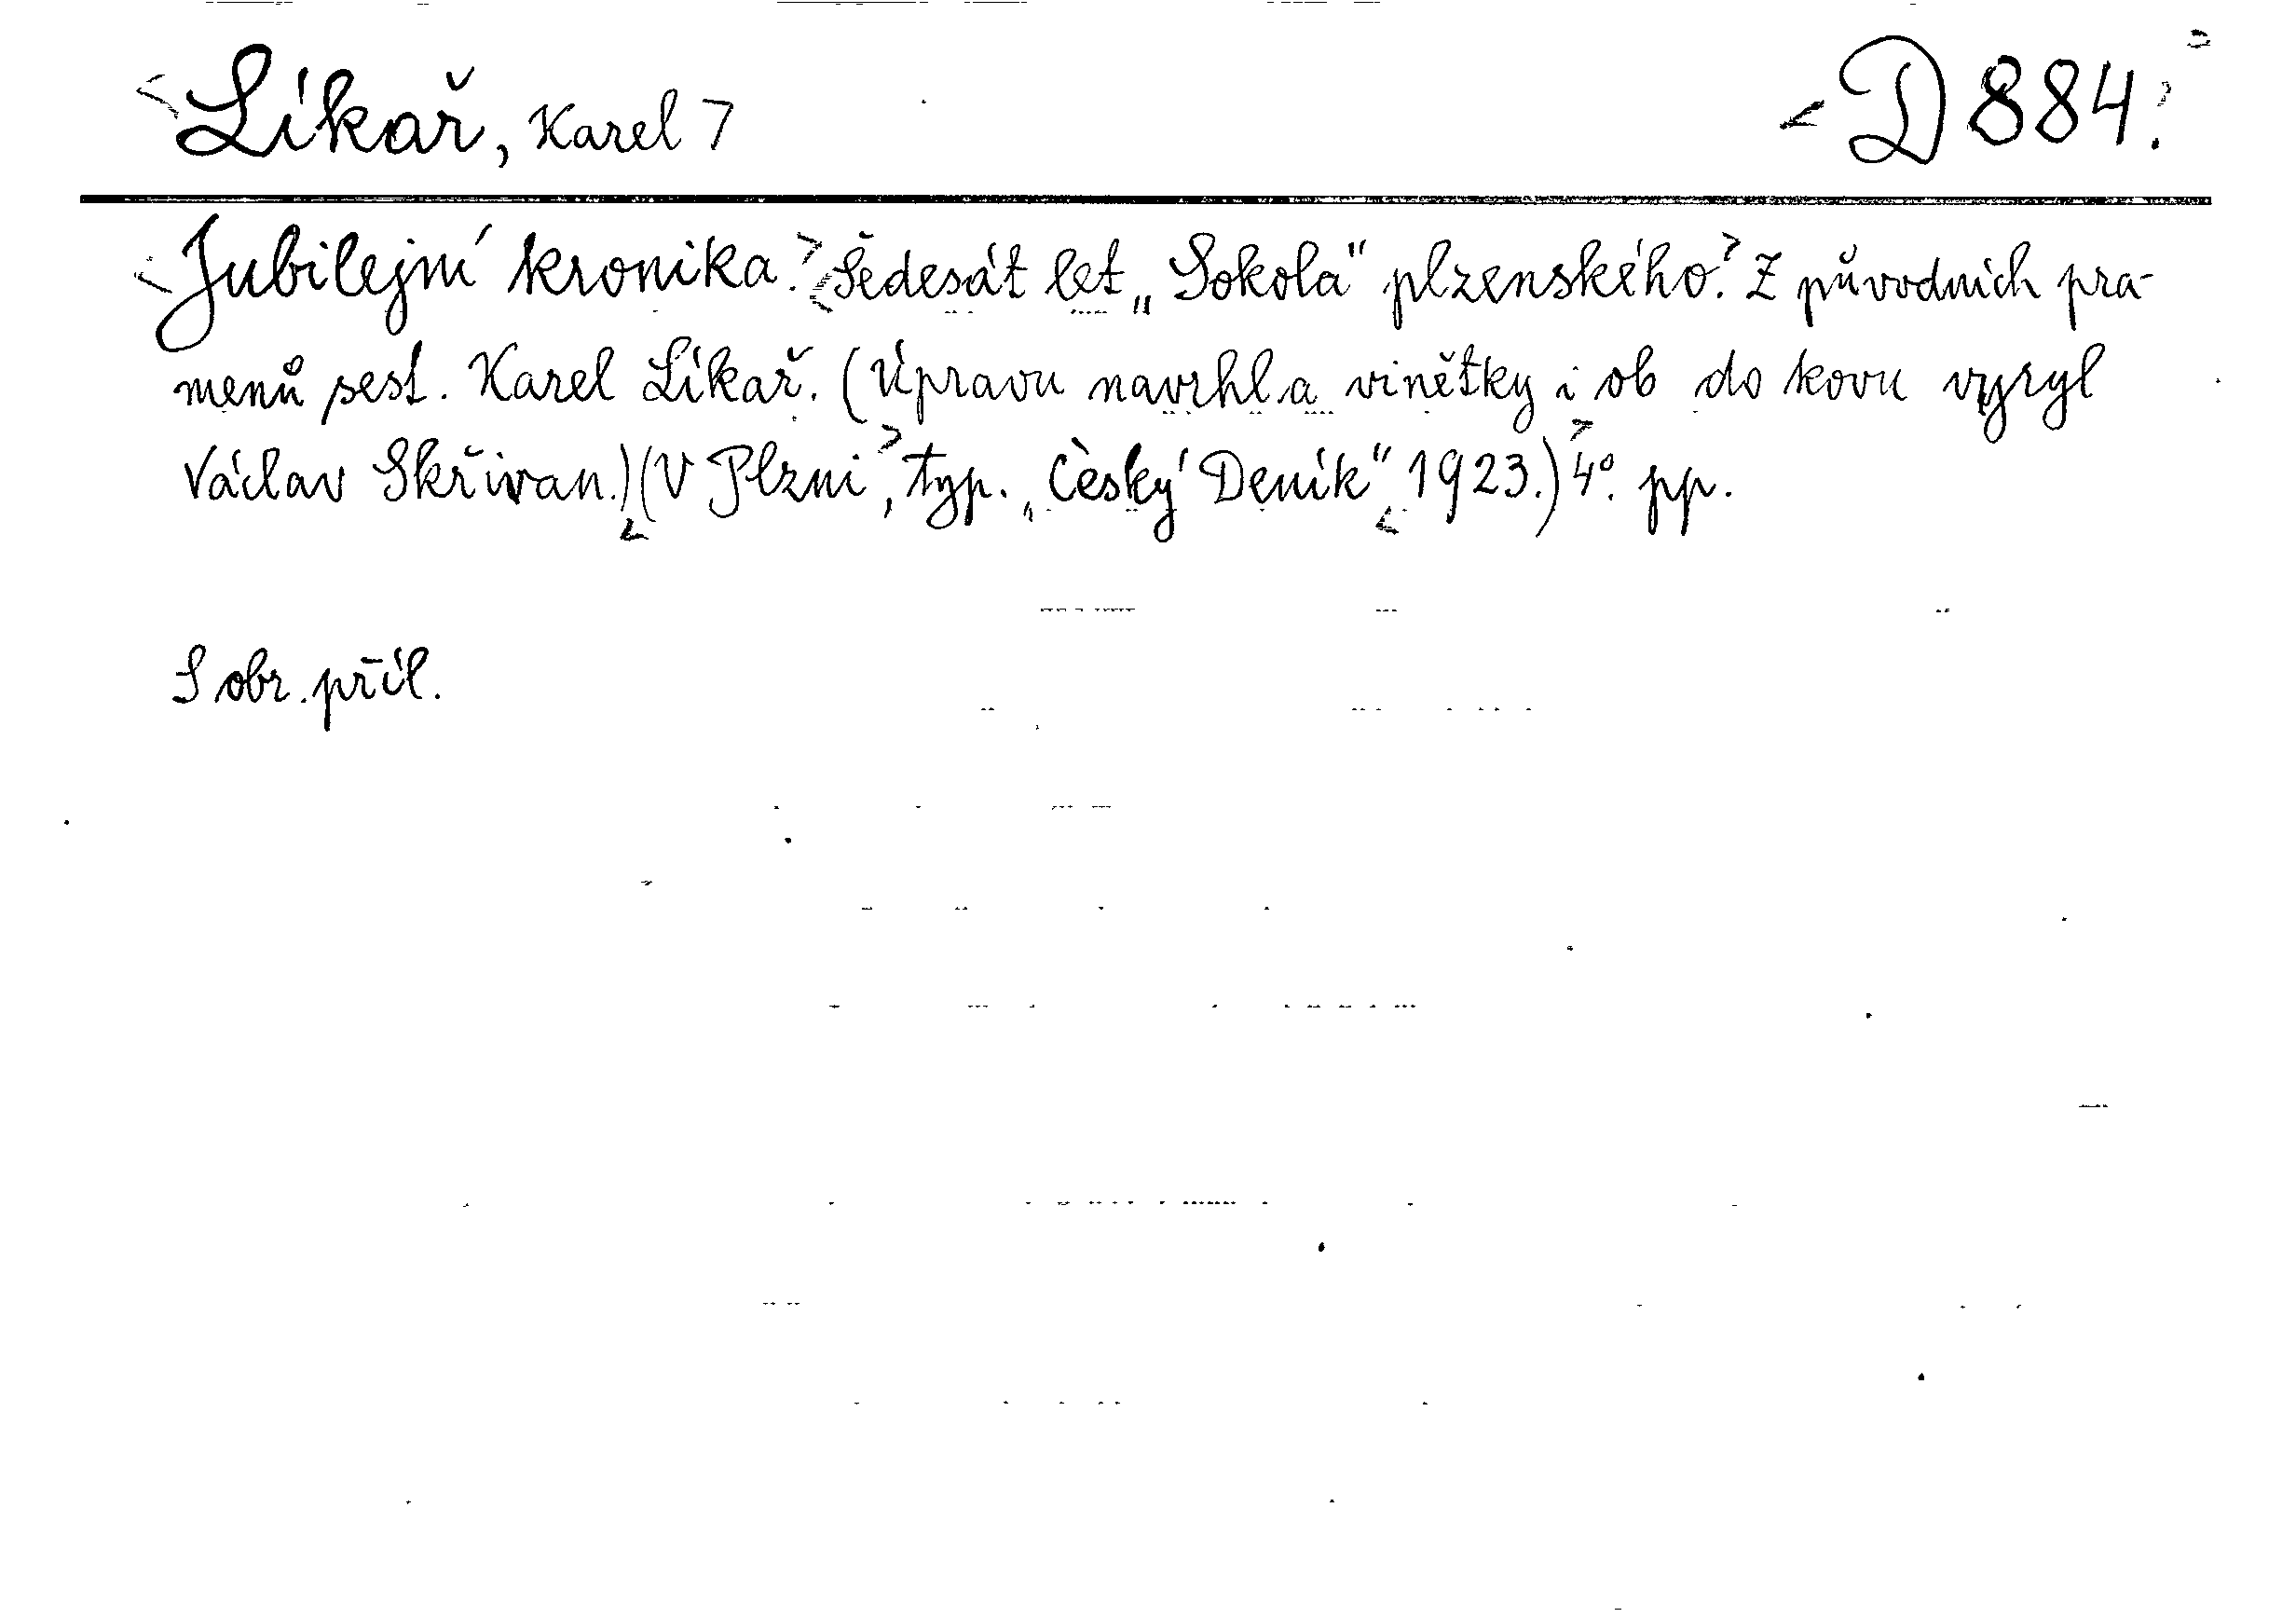 Líkař, Karel D 884.
Jubilejní kronika. Šedesát let „Sokola" plzenského. Z původních pra-
menů sest. Karel Líkař. (Úpravu navrhl a vinětky i ob do kovu vyryl
Václav Skřivan.) (V Plzni, typ. „Český Deník" 1923.) 4°. pp.
S obr. příl.